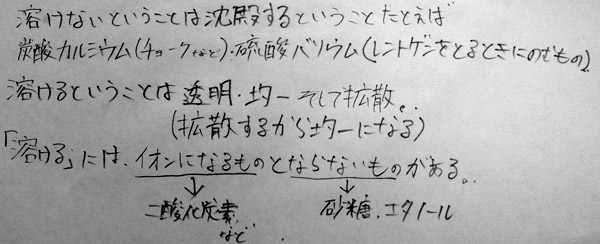 溶けないということは沈殿するということたとえば
炭酸カルシウム(チョークなど)・硫酸バリウム(レントゲンをとるときにのむもの)
溶けるということは透明・均一そして拡散。
(拡散するから均一になる)
「溶ける」には、イオンになるものとならないものがある。
二酸化炭素 砂糖、エタノール
など